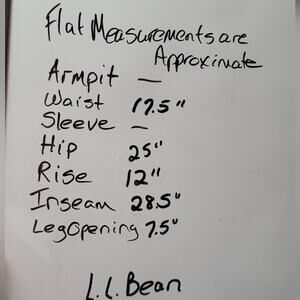 Flat Measurements are
Approximate
Armpit —
Waist 17.5"
Sleeve —
Hip 25"
Rise 12"
Inseam 28.5"
Leg Opening 7.5"
L.L. Bean